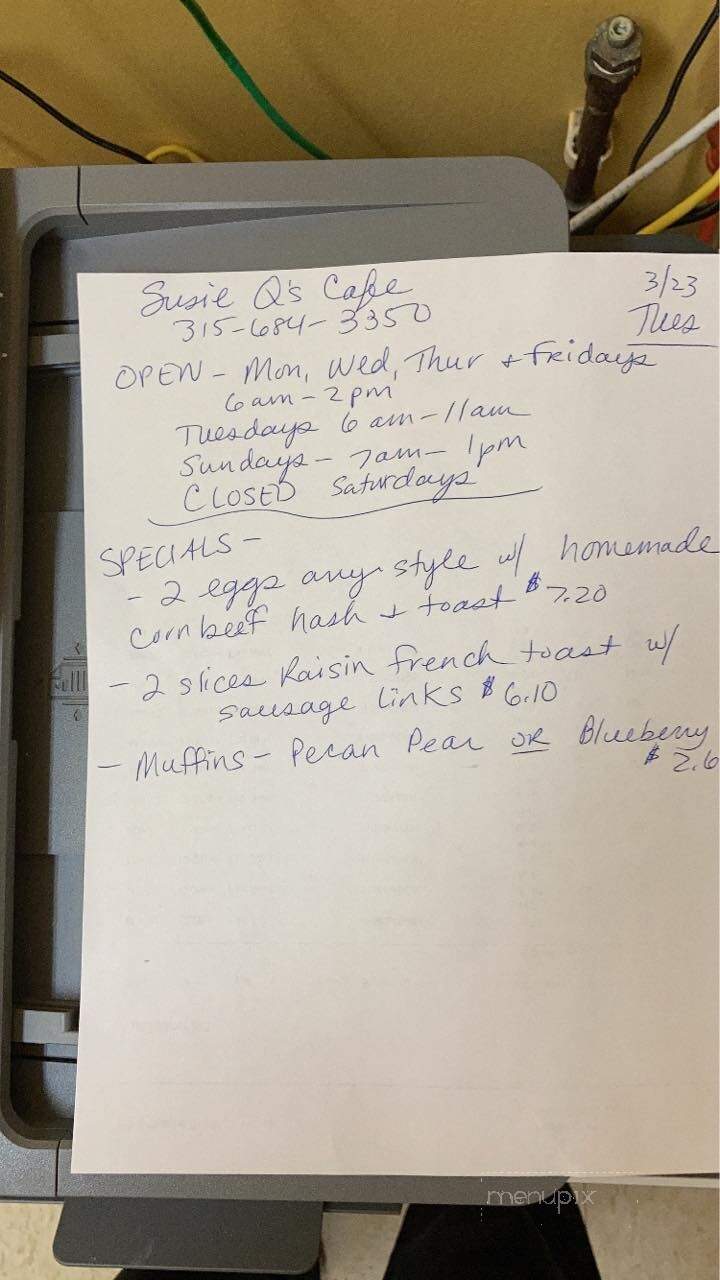 Susie Q's Cafe
3/23
315-684-3350
Tues
OPEN - Mon, Wed, Thur + Fridays
6am - 2pm
Tuesdays 6am - 11am
Sundays - 7am - 1pm
CLOSED Saturdays
SPECIALS -
- 2 eggs any style w/ homemade
cornbeef hash + toast $7.20
- 2 slices Raisin french toast w/
sausage links $6.10
- Muffins - Pecan Pear OR Blueberry
$2.6
menupix